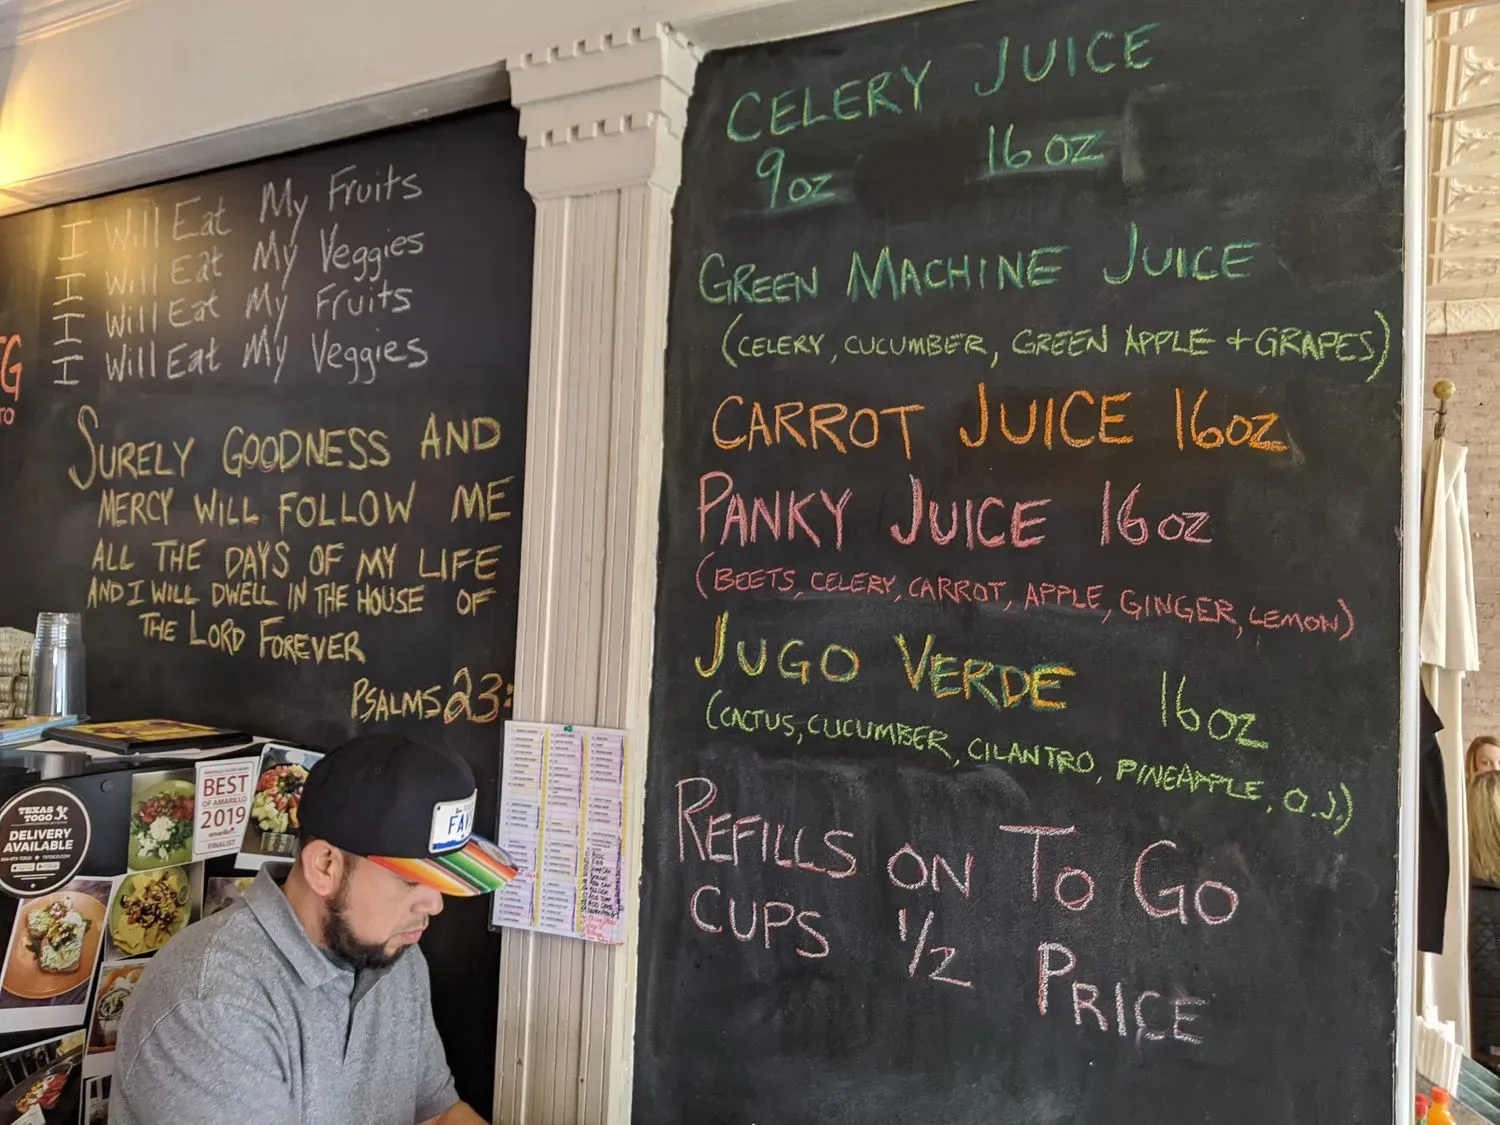 I Will Eat My Fruits
I Will Eat My Veggies
I Will Eat My Fruits
I Will Eat My Veggies
SURELY GOODNESS AND
MERCY WILL FOLLOW ME
ALL THE DAYS OF MY LIFE
AND I WILL DWELL IN THE HOUSE OF
THE LORD FOREVER
PSALMS 23:
TEXAS
TOGO
DELIVERY
AVAILABLE
BEST
OF AMARILLO
2019
FINALIST
CELERY JUICE
9oz 16oz
GREEN MACHINE JUICE
(CELERY, CUCUMBER, GREEN APPLE + GRAPES)
CARROT JUICE 16oz
PANKY JUICE 16oz
(BEETS, CELERY, CARROT, APPLE, GINGER, LEMON)
JUGO VERDE 16oz
(CACTUS, CUCUMBER, CILANTRO, PINEAPPLE, O.J.)
REFILLS ON TO GO
CUPS 1/2 PRICE